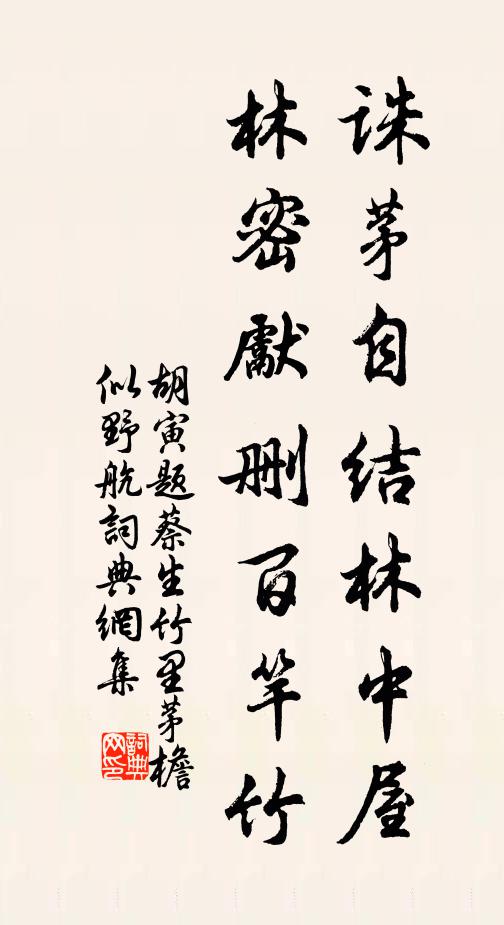 誅茅自结林中屋
林密獻删百竿竹
胡寅题蔡生竹里茅檐
似野航詞典網集
詞典网印